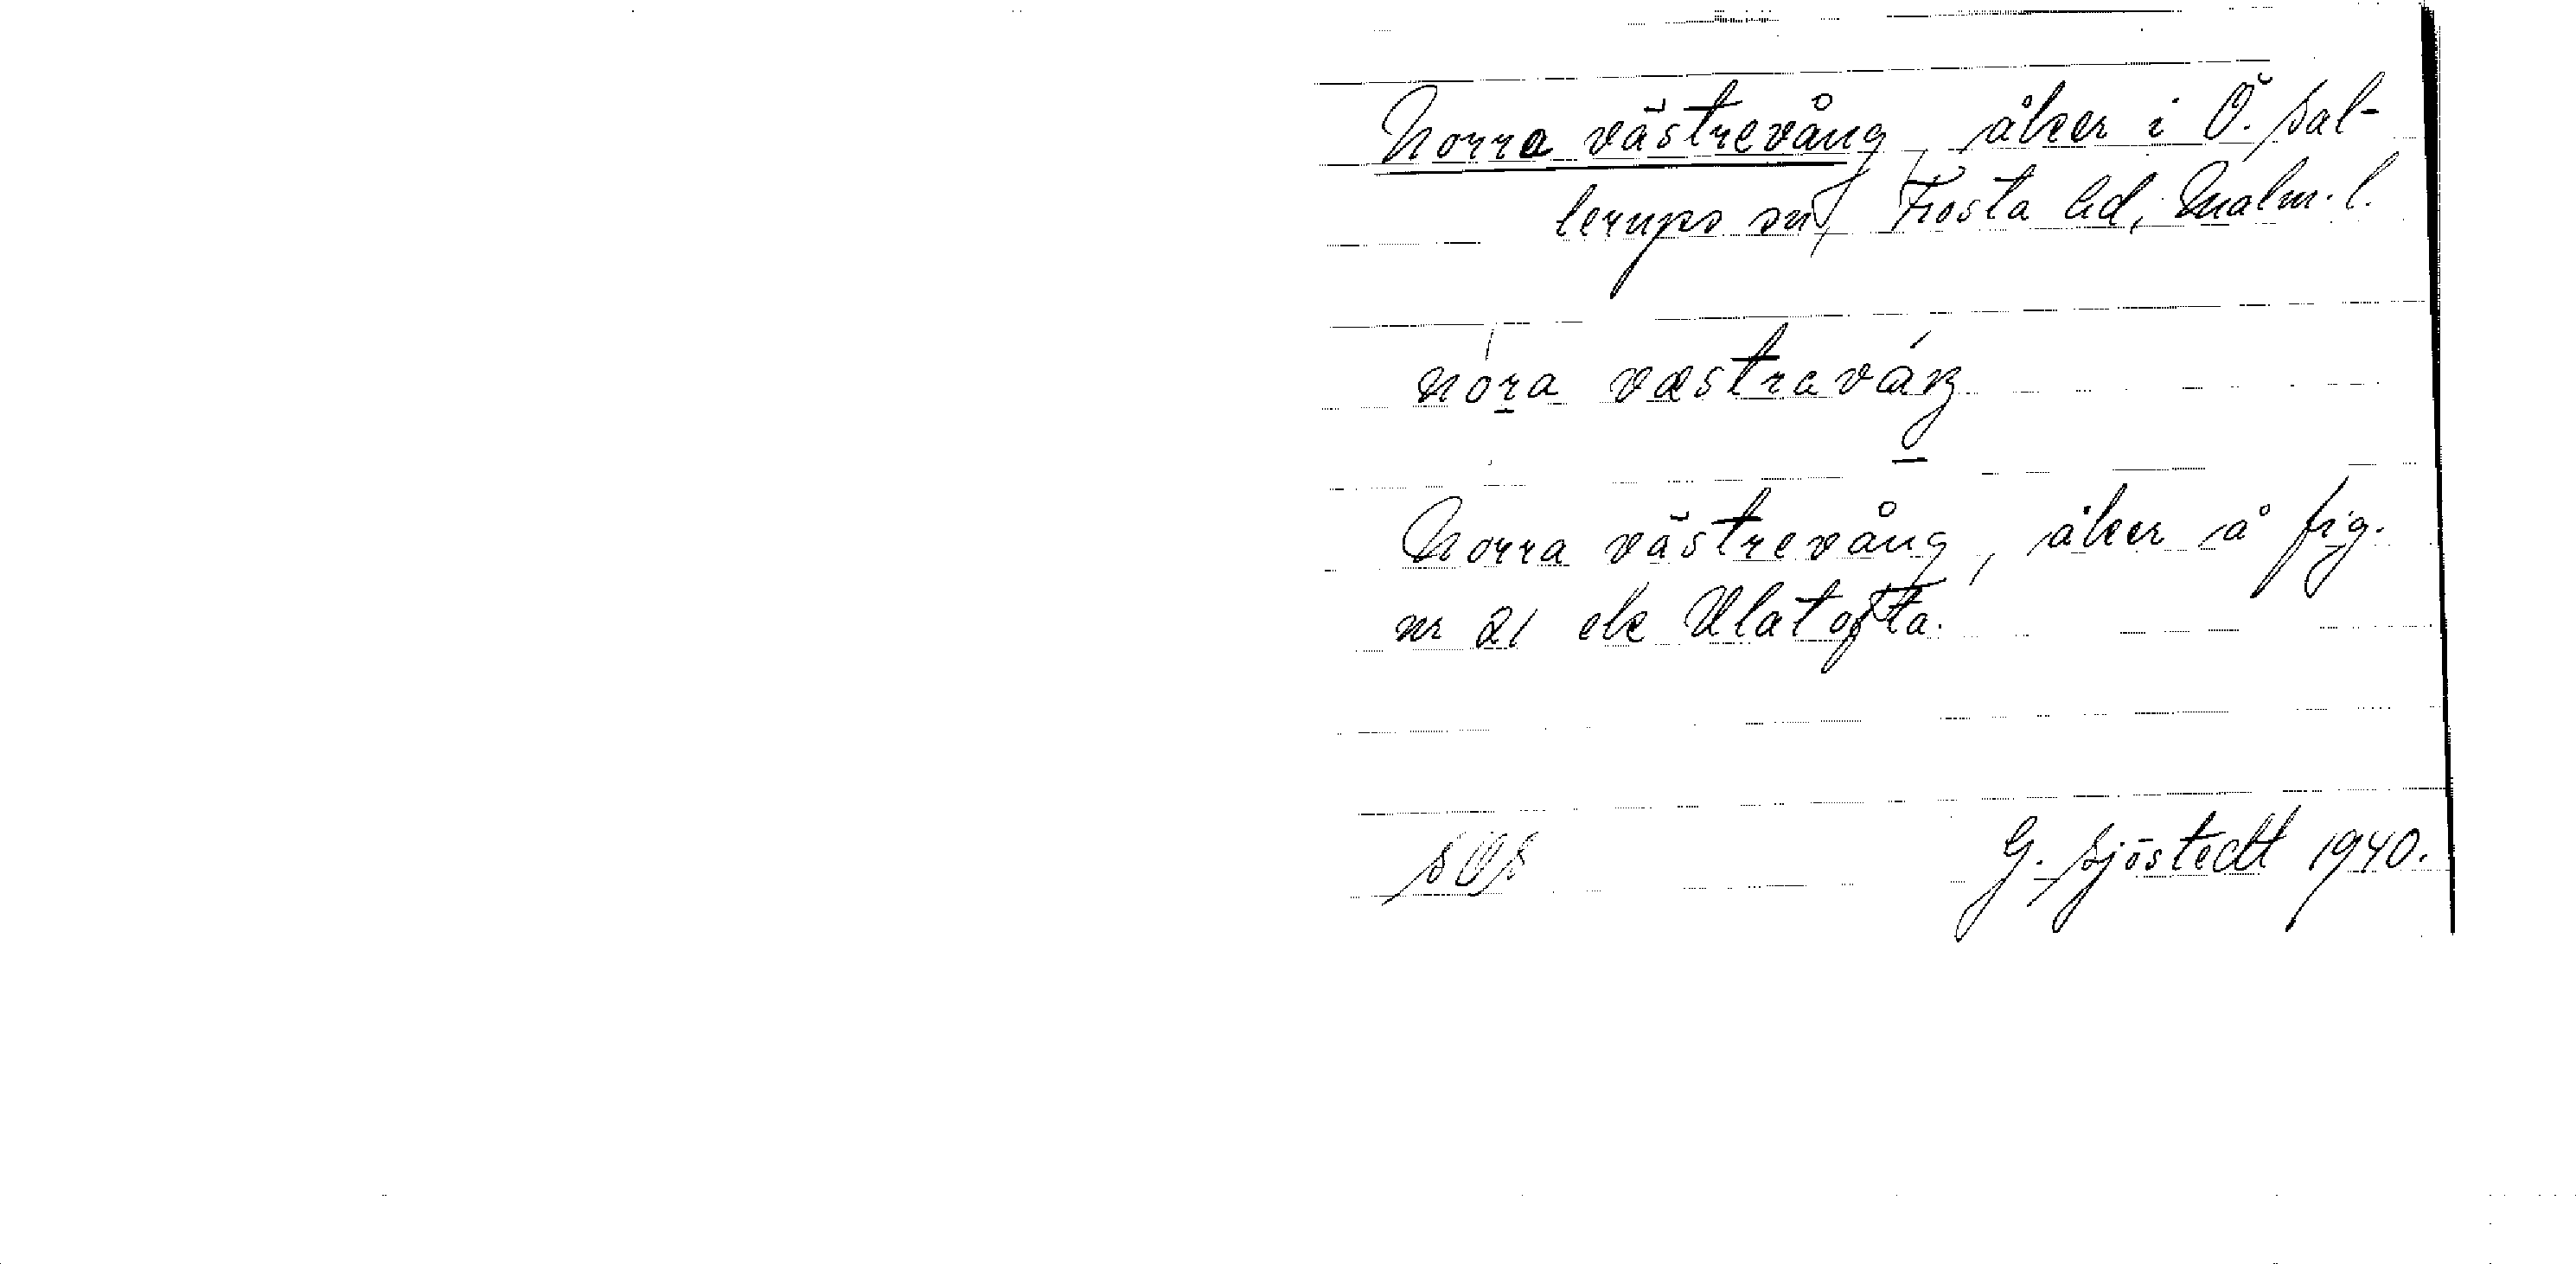 Norra västrevång, åker i Ö. Sal-
lerups sn, Frosta hd, Malm. l.
nóra vastraváŋ
Norra västrevång, åker å fig.
nr 21 ek Ulatofta.
SOS G. Sjöstedt 1940.